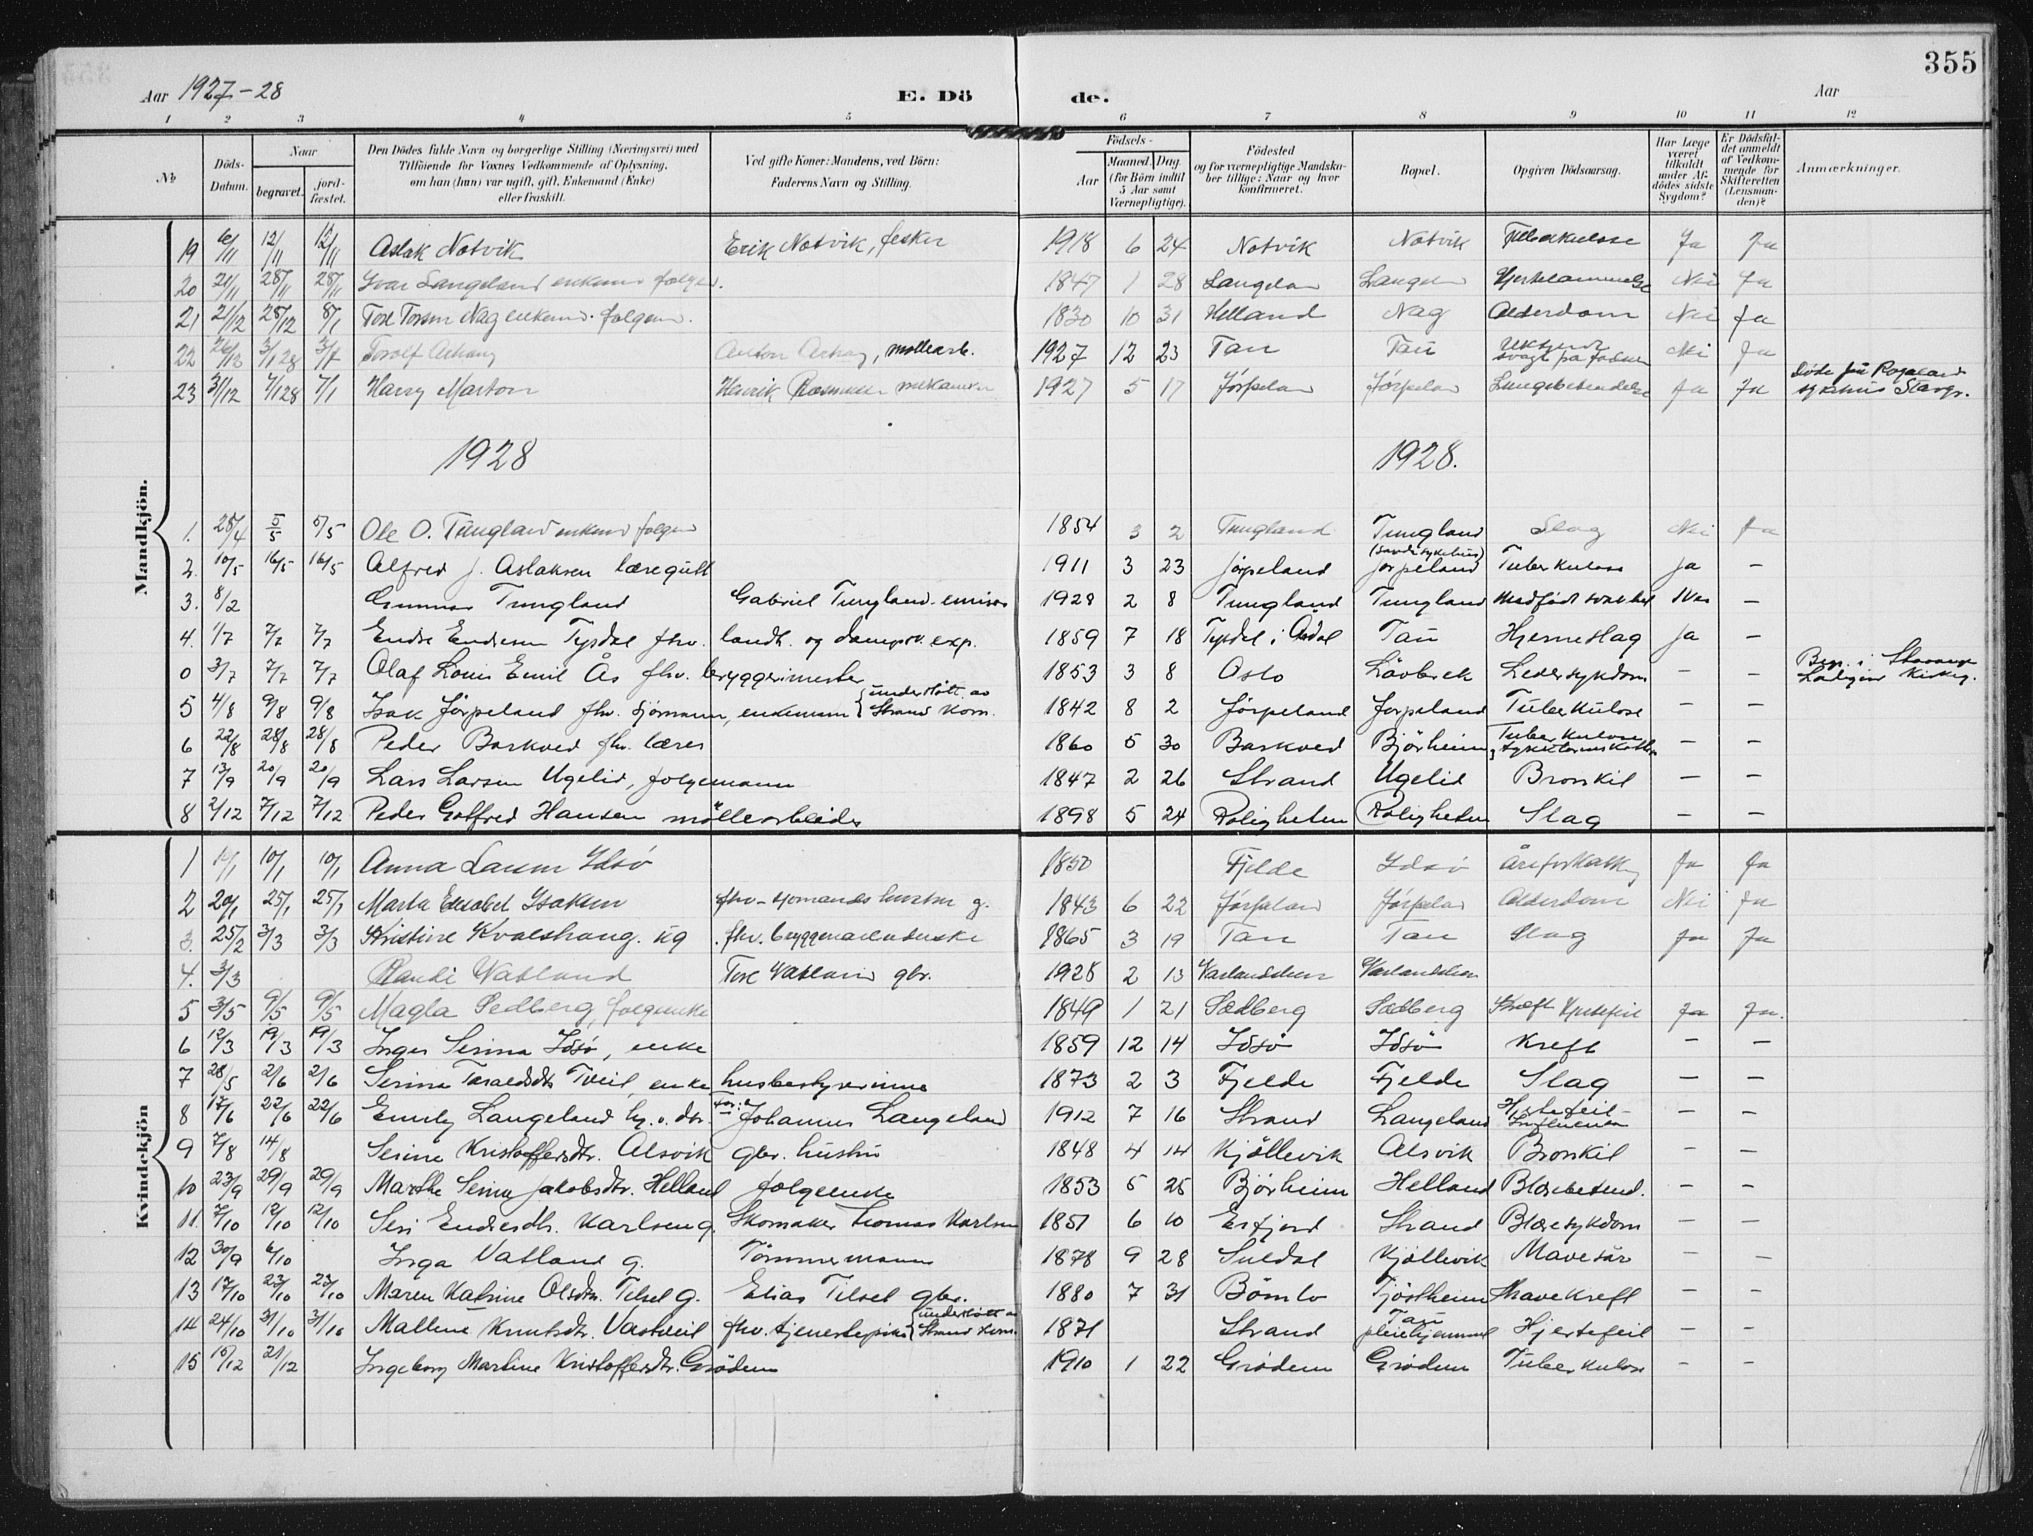 355
Aar 1927-28
E. Dö
de.
Aar
1 2 3 4 5 6 7 8 9 10 11 12
№
Døds-Datum.
Naar
begravet.
jord-fæstet.
Den Dödes fulde Navn og borgerlige Stilling (Næringsvei) med
Tilföiende for Voxnes Vedkommende af Oplysning,
om han (hun) var ugift, gift, Enkemand (Enke)
eller fraskilt.
Ved gifte Koner: Mandens, ved Börn:
Faderens Navn og Stilling.
Födsels-
Aar
Maaned. Dag.
(for Börn indtil
5 Aar samt
Værnepligtige).
Födested
og for værnepligtige Mandska-
ber tillige: Naar og hvor
konfirmeret.
Bopæl.
Opgiven Dödsaarsag.
Har Læge
været
tilkaldt
under Af-
dödes sidste
Sygdom?
Er Dödsfal-
det anmeldt
af Vedkom-
mende for
Skifteretten
(Lensman-
den)?
Anmærkninger.
Mandkjön.
19 6/11 12/11 12/11 Aslak Notvik Erik Notvik, fisker 1918 6 24 Notvik Notvik Tuberkulose Ja Ja
20 21/11 28/11 28/11 Ivar Langeland enkem folgem. 1847 1 28 Langelan Langelan Nei Ja
21 21/12 28/12 8/1 Tore Torsen Nag enkem. folgem. 1830 10 31 Helland Nag Alderdom Nei Ja
22 26/12 3/1 28 Torolf Anton møllearb. 1927 12 23 Tau Tau svagt på fødsel Nei Ja
23 31/12 7/1 28 7/1 Harry Marton Henrik Rasmussen mekaniker 1927 5 17 Jørpelan Jørpelan Lungebetendelse Ja Ja Døde på Rogaland
sykehus Stavgr.
1928 1928.
1. 28/4 5/5 5/5 Ole O. Tungland enkem folgem 1854 3 2 Tungland Tungland Slag Nei Ja
2. 10/5 16/5 16/5 Alfred J. Aslaksen læregutt 1911 3 23 Jørpeland Jørpeland Tuberkulose Ja —
3. 8/2 Gunnar Tungland Gabriel Tungland 1928 2 8 Tungland Tungland Medfødt svakhet —
4. 1/7 7/7 7/7 Endre Endresen Tysdal fhv. landh. og dampsk. exp. 1859 7 18 Tysdal i Årdal Tau Hjerneslag Ja —
0 3/7 7/7 7/7 Olaf Louis Emil Ås fhv. bryggerimester 1853 3 8 Oslo Løvbrek Leversykdom — — Begr. i Stavanger
5 4/8 9/8 9/8 Isak Jørpeland fhv. sjømann, enkemann understött. av
Strand kom. 1842 8 2 Jørpeland Jørpeland Tuberkulose — —
6 22/8 28/8 28/8 Peder Barkved fhv. lærer 1860 5 30 Barkved Bjørheim Tuberkulose — —
7 13/9 20/9 20/9 Lars Larsen Ugelid, folgemann 1847 2 26 Strand Ugelid Bronkit — —
8 2/12 7/12 7/12 Peder Gotfred Hansen møllearbeider 1898 5 24 Roligheten Roligheten Slag — —
Kvindekjön
1 10/1 10/1 Anna Larsen Idsø 1850 Fjelde Idsø Åreforkalk Ja Ja
2 20/1 25/1 25/1 Marta Elisabet Isaksen fhv. sjømands hustru g. 1843 6 22 Jørpelan Jørpelan Alderdom Nei Ja
3. 25/2 3/3 3/3 Kristine Kvaleshaug. ug 1865 3 19 Tau Tau Slag Ja Ja
4. 3/3 Randi Vatland Tore Vatland gbr. 1928 2 13
5 3/5 9/5 9/5 Magla Sedberg, folgeenke 1849 1 21 Sædberg Sædberg Kræft Hjertefeil Ja Ja.
6 12/3 19/3 19/3 Inger Serina Idsø, enke 1859 12 14 Idsø Idsø Kreft — —
7 28/5 2/6 2/6 Serina Taraldsdtr. Tveit, enke husbestyrerinne 1873 2 3 Fjelde Fjelde Slag — —
8 17/6 22/6 22/6 Emily Langeland hj.v. dtr. Far: Johannes Langeland 1912 7 16 Strand Langeland Hjertefeil-
Influensa — —
9 7/8 14/8 Serine Kristoffersdtr. Alsvik gbr. hustru 1848 4 14 Kjøllevik Alsvik Bronkit — —
10 23/9 29/9 29/9 Marthe Serina Jakobsdtr. Helland folgeenke 1853 5 25 Bjørheim Helland Blærebetend. — —
11. 7/10 12/10 12/10 Siri Endresdtr. Karlsen g. Skomaker Thomas Karlsen 1851 6 10 Erfjord Strand Blæresykdom — —
12 30/9 6/10 Inga Vatland g. Tømmermann 1878 9 28 Suldal Kjøllevik Mavesår — —
13 17/10 23/10 23/10 Maren Katrine Olsdtr. Tilset g. Elias Tilset gbr. 1880 7 31 Bømlo Tjøstheim Mavekreft — —
14 24/10 31/10 31/10 Malline Knutsdtr. Vastveit fhv. tjenestepike understött av
Strand kom. 1871 Strand Tau
pleiehjemmet Hjertefeil — —
15 15/12 21/12 Ingeborg Martine Kristoffersdtr. Grødem 1910 1 22 Grødem Grødem Tuberkulose — —